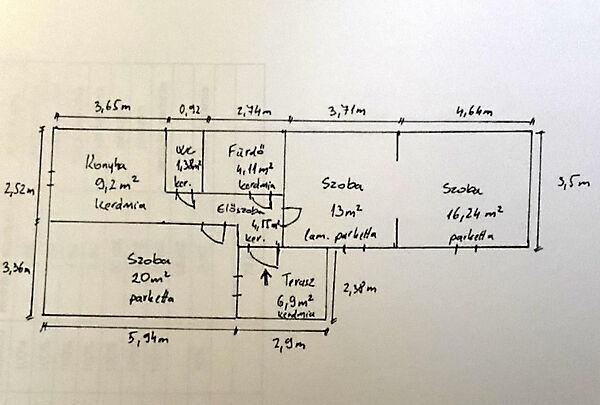 3,65m
0,92
2,74m
3,71m
4,64m
Konyha
9,2 m²
kerámia
WC
1,38m²
ker.
Fürdő
4,11m²
kerámia
Szoba
13m²
lam. parketta
Szoba
16,24 m²
parketta
3,5m
2,52m
Előszoba
ker.
3,36m
Szoba
20m²
parketta
Terasz
6,9m²
kerámia
2,38m
5,94m
2,9m